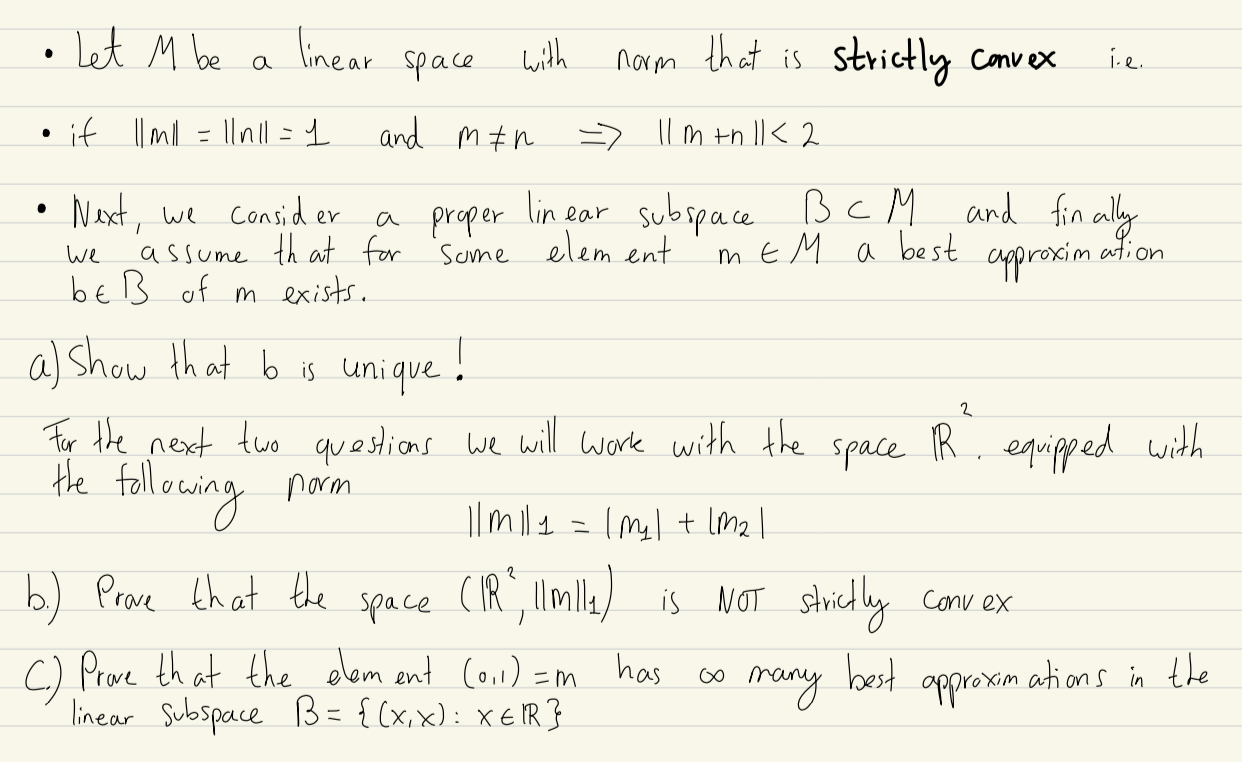 • Let M be a linear space with norm that is strictly convex i.e.
• if ||m|| = ||n|| = 1 and m ≠ n => ||m+n|| < 2
• Next, we consider a proper linear subspace B ⊂ M and finally
we assume that for some element m ∈ M a best approximation
b ∈ B of m exists.
a) Show that b is unique!
For the next two questions we will work with the space ℝ². equipped with
the following norm
||m||₁ = |m₁| + |m₂|
b.) Prove that the space (ℝ², ||m||₁) is NOT strictly convex
C.) Prove that the element (0,1) = m has ∞ many best approximations in the
linear subspace B = {(x,x): x ∈ ℝ}